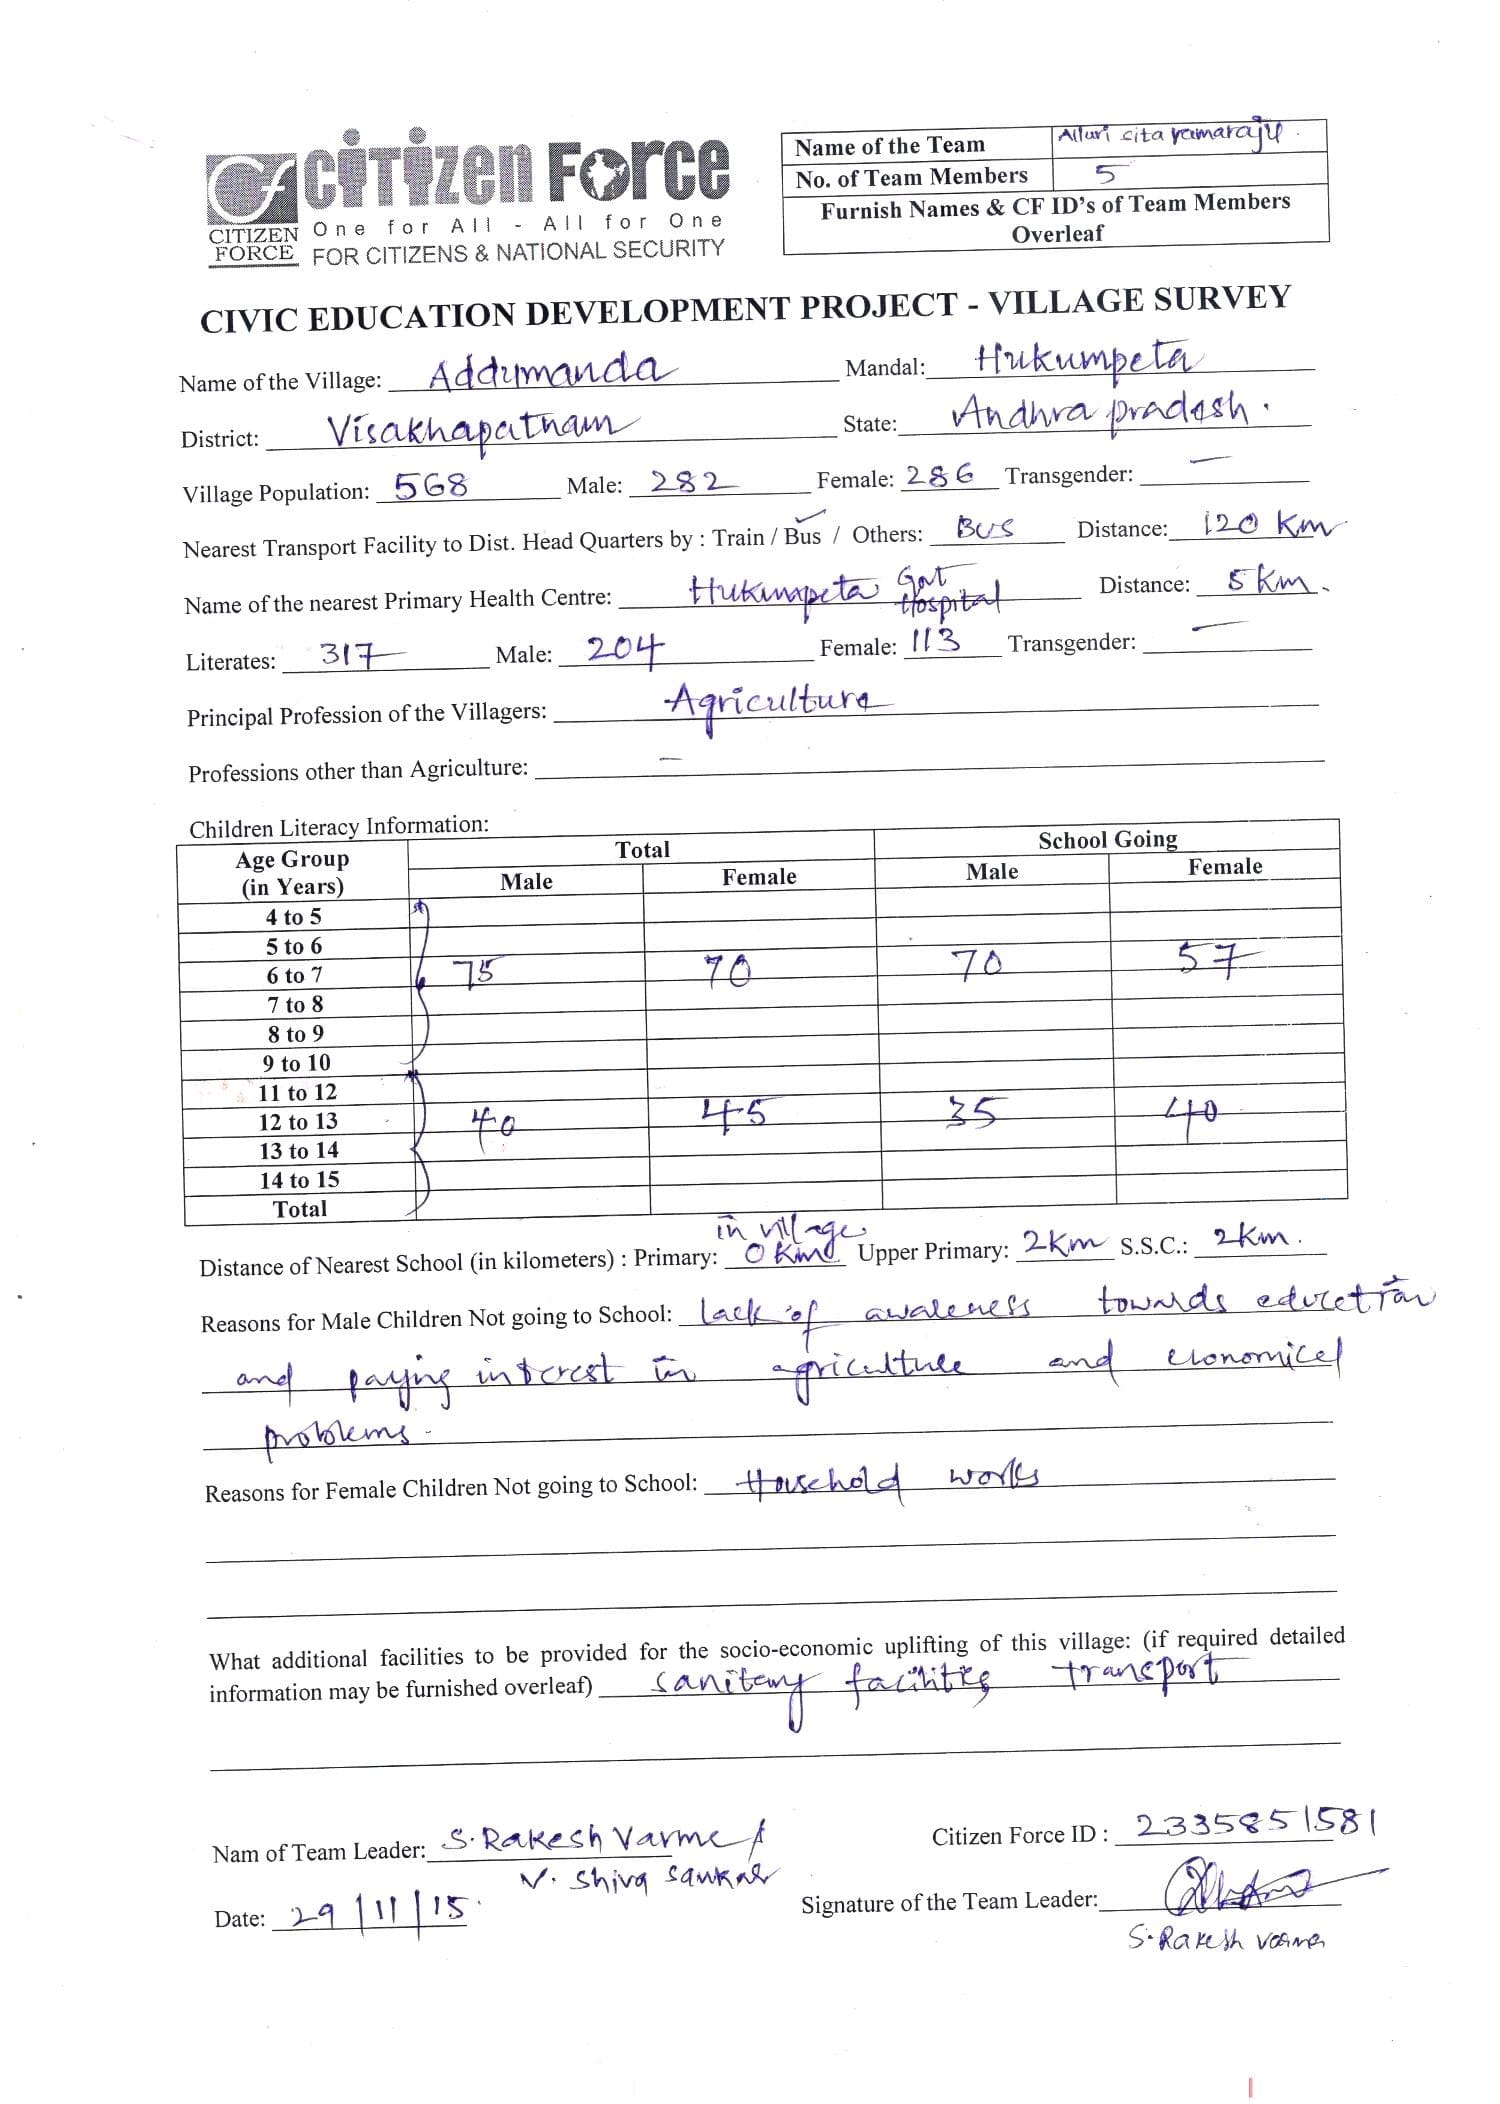 CITIZEN FORCE
One for All - All for One
CITIZEN
FORCE
FOR CITIZENS & NATIONAL SECURITY
Name of the Team Alluri sita ramaraju
No. of Team Members 5
Furnish Names & CF ID's of Team Members
Overleaf
CIVIC EDUCATION DEVELOPMENT PROJECT - VILLAGE SURVEY
Name of the Village: Addumanda Mandal: Hukumpeta
District: Visakhapatnam State: Andhra pradesh.
Village Population: 568 Male: 282 Female: 286 Transgender: —
Nearest Transport Facility to Dist. Head Quarters by : Train / Bus / Others: BUS Distance: 120 Km
Name of the nearest Primary Health Centre: Hukumpeta Govt Hospital Distance: 5 Km.
Literates: 317 Male: 204 Female: 113 Transgender: —
Principal Profession of the Villagers: Agriculture
Professions other than Agriculture: —
Children Literacy Information:
Age Group (in Years) Total School Going
Male Female Male Female
4 to 5
5 to 6
6 to 7 75 70 70 57
7 to 8
8 to 9
9 to 10
11 to 12
12 to 13 40 45 35 40
13 to 14
14 to 15
Total
in village
Distance of Nearest School (in kilometers) : Primary: 0 Km Upper Primary: 2Km S.S.C.: 2Km.
Reasons for Male Children Not going to School: lack of awareness towards education
and paying interest in agriculture and economical
problems.
Reasons for Female Children Not going to School: Household works
What additional facilities to be provided for the socio-economic uplifting of this village: (if required detailed
information may be furnished overleaf) sanitary facilities transport
Nam of Team Leader: S. Rakesh Varma / Citizen Force ID : 2335851581
V. Shiva Sankar
Date: 29/11/15. Signature of the Team Leader:
S. Rakesh Varma